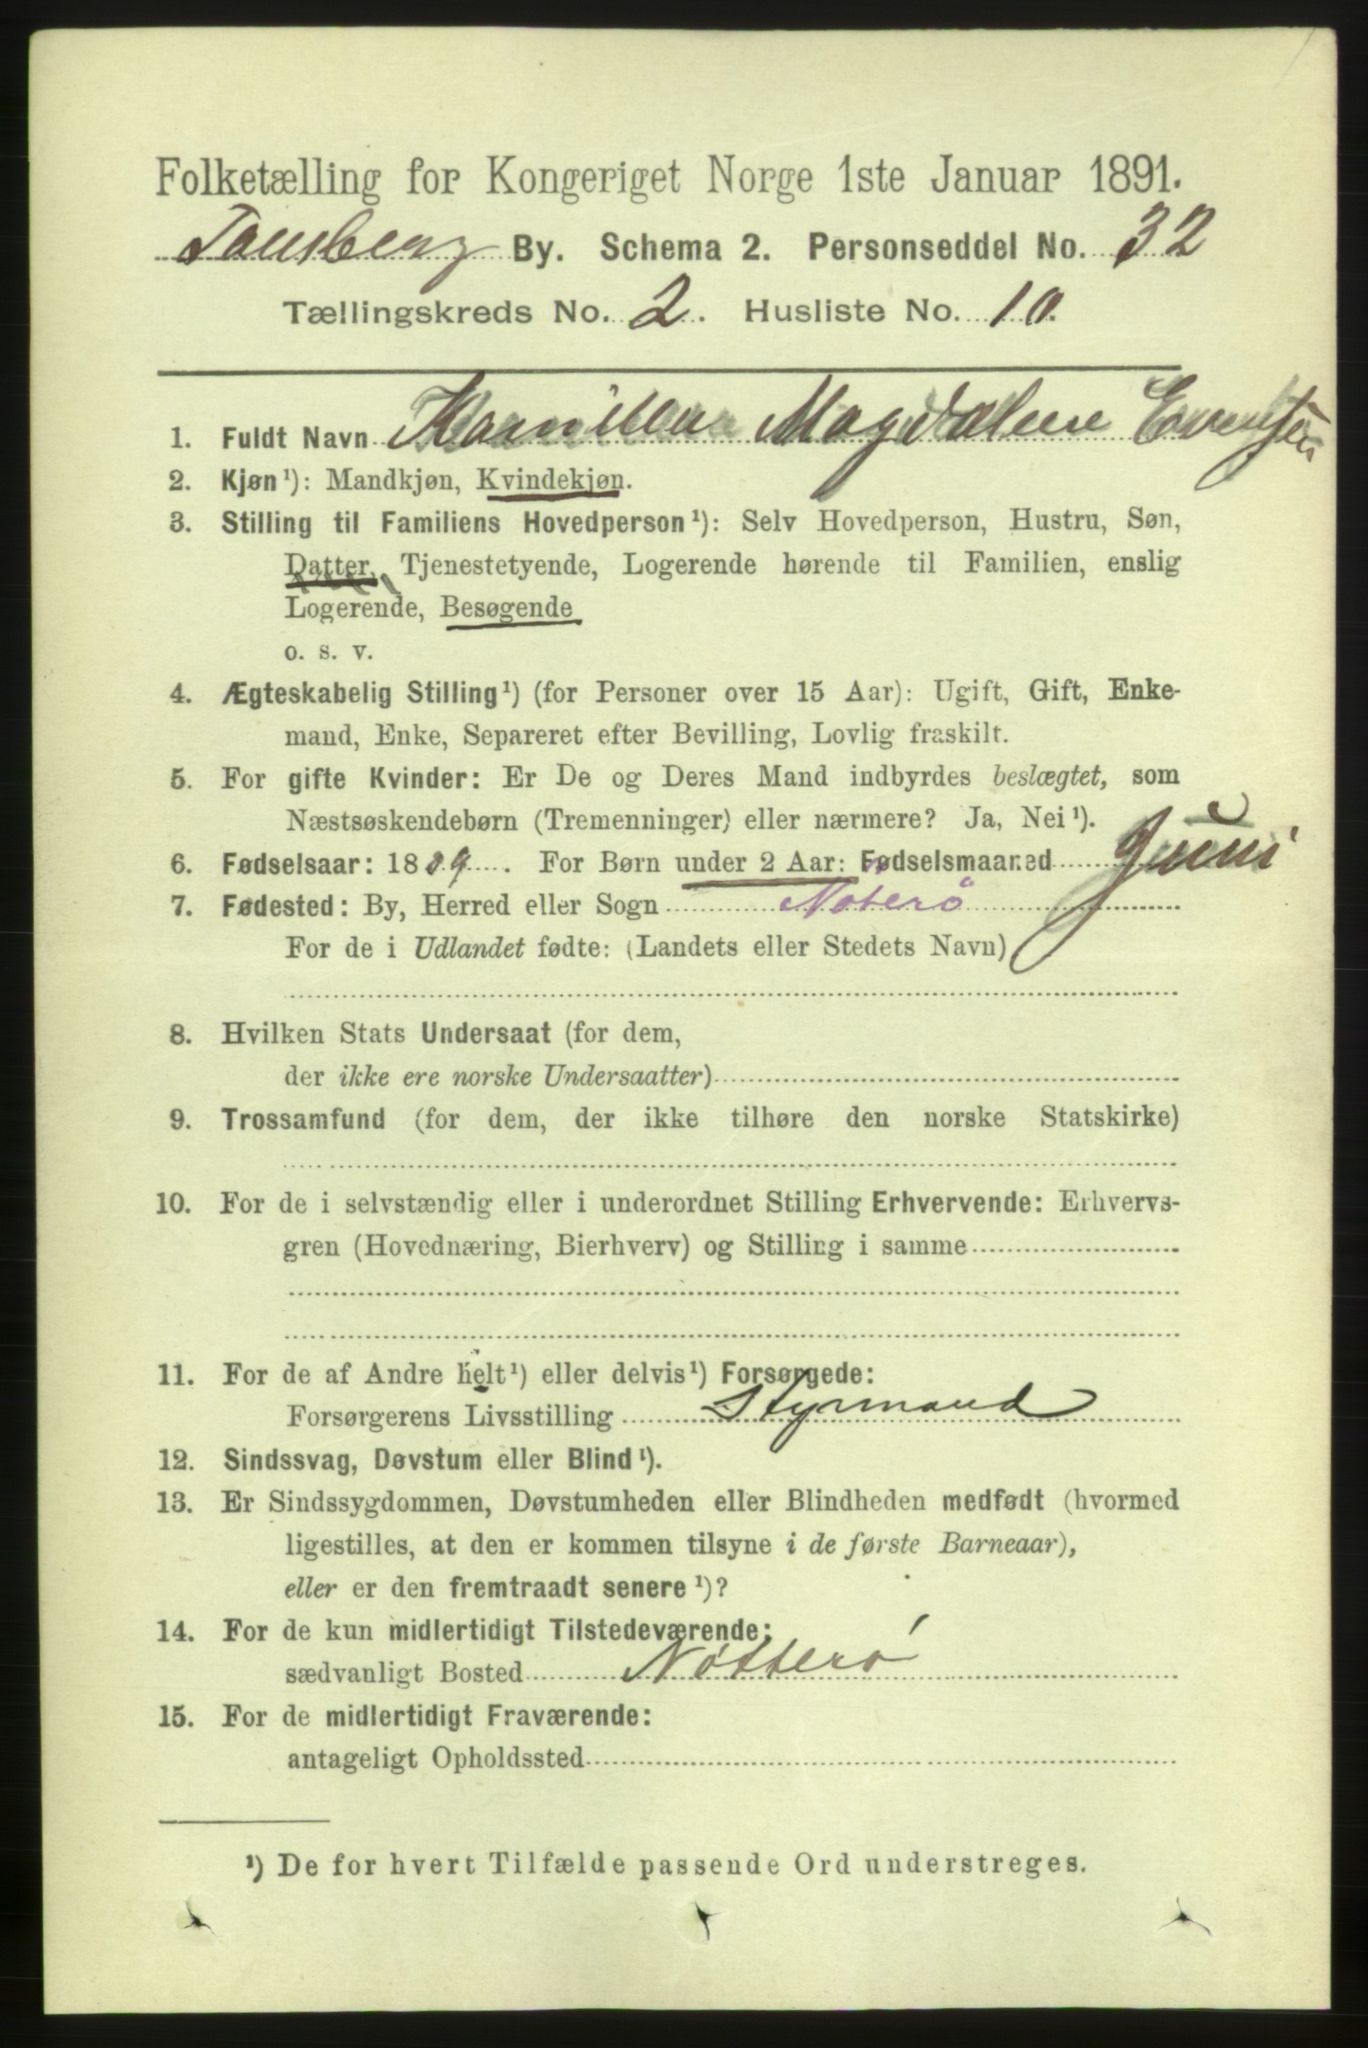 Folketælling for Kongeriget Norge 1ste Januar 1891.
Tønsberg By. Schema 2. Personseddel No. 32
Tællingskreds No. 2. Husliste No. 10.
1. Fuldt Navn Magdalene Evensen
2. Kjøn¹): Mandkjøn, Kvindekjøn.
3. Stilling til Familiens Hovedperson¹): Selv Hovedperson, Hustru, Søn,
Datter, Tjenestetyende, Logerende hørende til Familien, enslig
Logerende, Besøgende
o. s. v.
4. Ægteskabelig Stilling¹) (for Personer over 15 Aar): Ugift, Gift, Enke-
mand, Enke, Separeret efter Bevilling, Lovlig fraskilt.
5. For gifte Kvinder: Er De og Deres Mand indbyrdes beslægtet, som
Næstsøskendebørn (Tremenninger) eller nærmere? Ja, Nei¹).
6. Fødselsaar: 1889. For Børn under 2 Aar: Fødselsmaaned Juni
7. Fødested: By, Herred eller Sogn Nøterö
For de i Udlandet fødte: (Landets eller Stedets Navn)
8. Hvilken Stats Undersaat (for dem,
der ikke ere norske Undersaatter)
9. Trossamfund (for dem, der ikke tilhøre den norske Statskirke)
10. For de i selvstændig eller i underordnet Stilling Erhvervende: Erhvervs-
gren (Hovednæring, Bierhverv) og Stilling i samme
11. For de af Andre helt¹) eller delvis¹) Forsørgede:
Forsørgerens Livsstilling Styrmand
12. Sindssvag, Døvstum eller Blind¹).
13. Er Sindssygdommen, Døvstumheden eller Blindheden medfødt (hvormed
ligestilles, at den er kommen tilsyne i de første Barneaar),
eller er den fremtraadt senere¹)?
14. For de kun midlertidigt Tilstedeværende:
sædvanligt Bosted Nøtterø
15. For de midlertidigt Fraværende:
antageligt Opholdssted
¹) De for hvert Tilfælde passende Ord understreges.